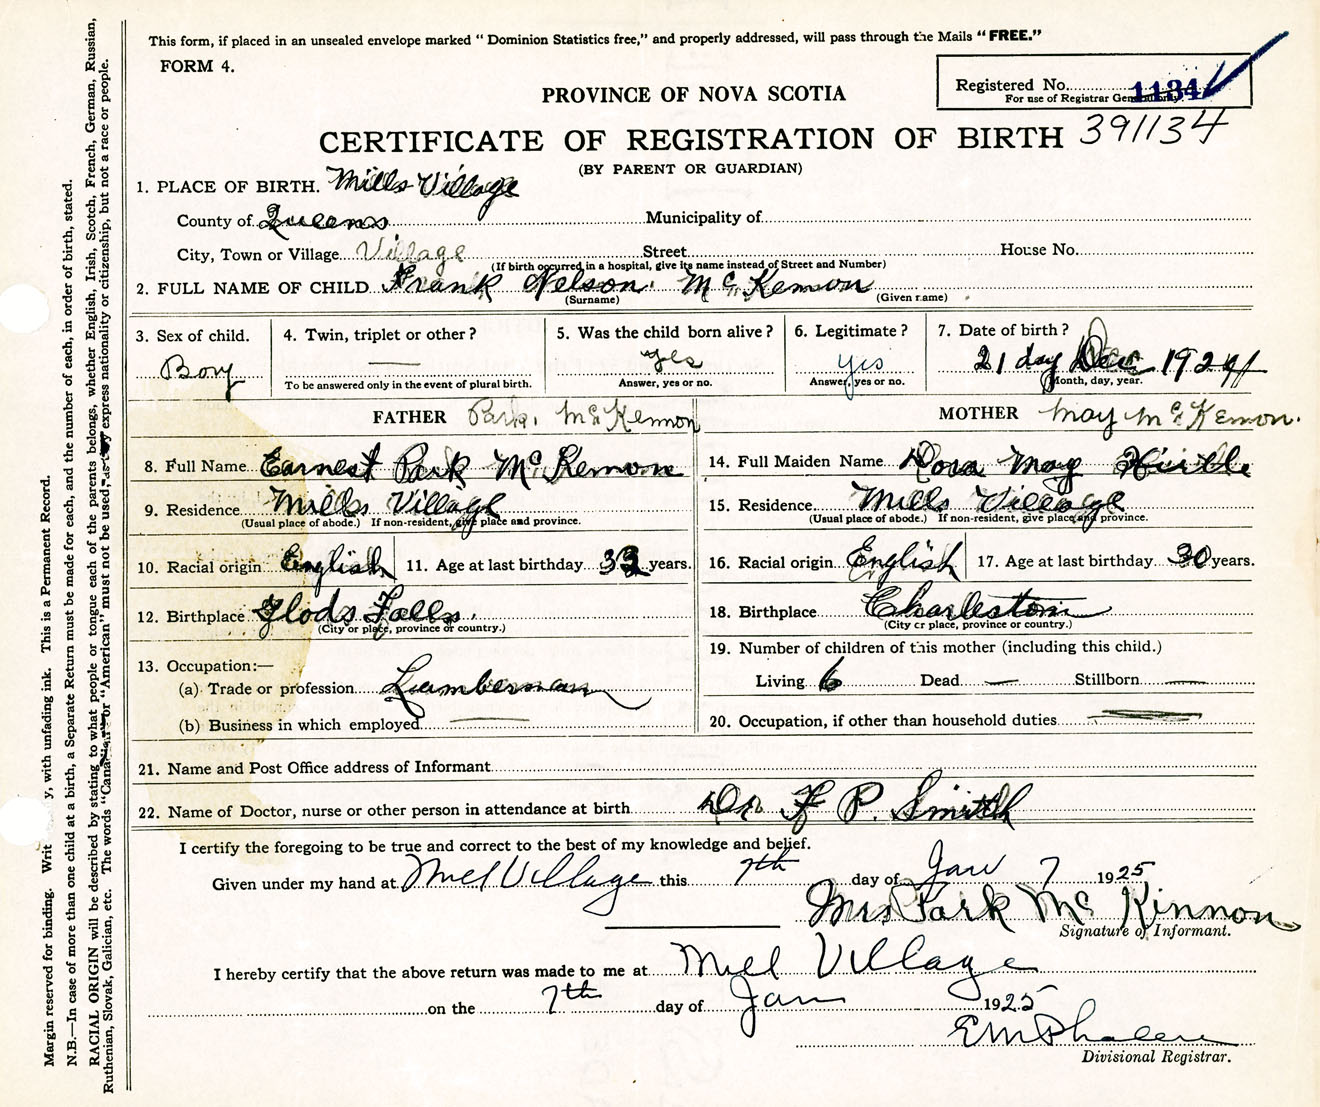 This form, if placed in an unsealed envelope marked " Dominion Statistics free," and properly addressed, will pass through the Mails "FREE."
FORM 4.
Registered No. 1134
For use of Registrar General only.
PROVINCE OF NOVA SCOTIA
CERTIFICATE OF REGISTRATION OF BIRTH 391134
(BY PARENT OR GUARDIAN)
1. PLACE OF BIRTH. Mills Village
County of Queens Municipality of
City, Town or Village Village Street House No.
(If birth occurred in a hospital, give its name instead of Street and Number)
2. FULL NAME OF CHILD Frank Nelson Mc Kemon
(Surname) (Given name)
3. Sex of child. 4. Twin, triplet or other? 5. Was the child born alive? 6. Legitimate? 7. Date of birth?
Boy — yes yes 21 day Dec 1924
To be answered only in the event of plural birth. Answer, yes or no. Answer, yes or no. Month, day, year.
FATHER Park. Mc Kemon MOTHER May Mc Kemon.
8. Full Name Earnest Park Mc Kemon 14. Full Maiden Name Dora May Hirtle
9. Residence Mills Village 15. Residence Mills Village
(Usual place of abode.) If non-resident, give place and province. (Usual place of abode.) If non-resident, give place and province.
10. Racial origin English 11. Age at last birthday 33 years. 16. Racial origin English 17. Age at last birthday 30 years.
12. Birthplace Glods Falls. 18. Birthplace Charleston
(City or place, province or country.) (City or place, province or country.)
13. Occupation:— 19. Number of children of this mother (including this child.)
(a) Trade or profession Lumberman Living 6 Dead — Stillborn —
(b) Business in which employed — 20. Occupation, if other than household duties —
21. Name and Post Office address of Informant
22. Name of Doctor, nurse or other person in attendance at birth Dr F P. Smith
I certify the foregoing to be true and correct to the best of my knowledge and belief.
Given under my hand at Mill Village this 7th day of Jan 7 1925
Mrs Park Mc Kinnon
Signature of Informant.
I hereby certify that the above return was made to me at Mill Village
on the 7th day of Jan 1925
Divisional Registrar.
Margin reserved for binding. Writ y, with unfading ink. This is a Permanent Record.
N.B.—In case of more than one child at a birth, a Separate Return must be made for each, and the number of each, in order of birth, stated.
RACIAL ORIGIN will be described by stating to what people or tongue each of the parents belongs, whether English, Irish, Scotch, French, German, Russian,
Ruthenian, Slovak, Galician, etc. The words "Canadian" or "American" must not be used, as they express nationality or citizenship, but not a race or people.